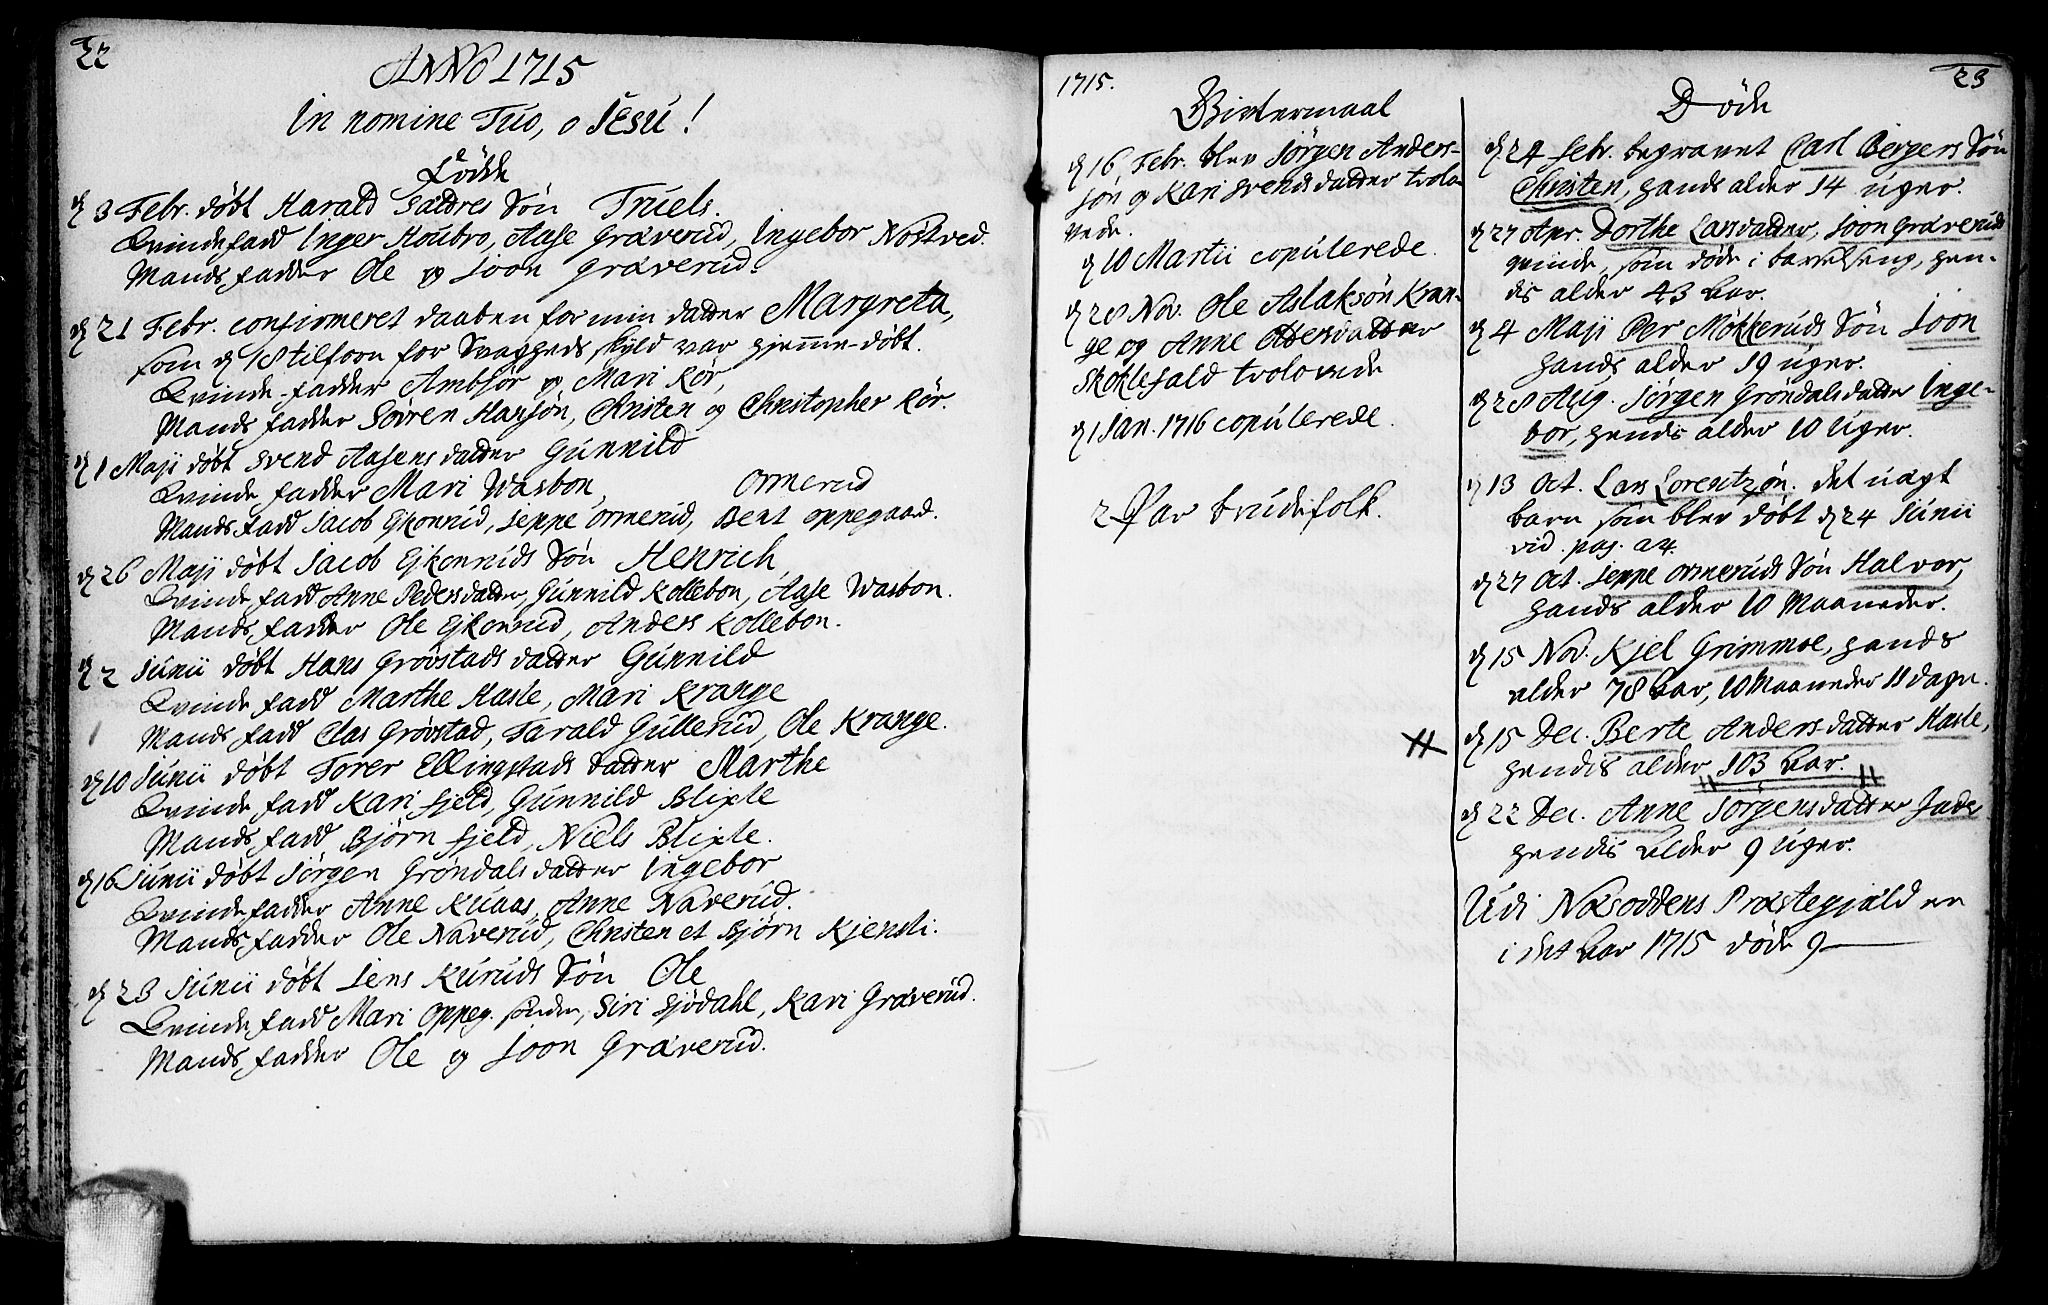 22
ANNO 1715
In nomine Tuo, o JESU!
Födde
d 3 Febr. döbt Harald Sætdres Sön Truels.
Qvinde fadd Inger Houbro, Aase Graverud, Ingebor Nostved.
Mands fadder Ole og Joon Graverud.
d 21 Febr. confirmeret daaben for min datter Margreta,
som d 18 tilforn for Svagheds skyld var hjemme-döbt.
Qvinde-fadder Ambjör og Mari Rör,
Mands fadder Sören Hansön, Christen og Christopher Rör.
d 1 Maji döbt Svend Aasens datter Gunnild
Qvinde fadder Mari Wasbon, Ormerud
Mands fadd Jacob Ejkonrud, Jeppe Ormerud, Bent Oppegaard.
d 26 Maji döbt Jacob Ejkonruds Sön Henrich
Qvinde fadd Anne Pedersdatter, Gunnild Kollebon, Aase Wasbon.
Mands fadder Ole Ejkonrud, Anders Kollebon.
d 2 Junii döbt Hans Grövstads datter Gunnild
Qvinde fadd Marthe Hasle, Mari Krange
Mands fadd Clas Grövstad, Tarald Gullerud, Ole Krange.
d 10 Junii döbt Torer Ellingstads datter Marthe
Qvinde fadd Kari fjeld, Gunnild Blixle
Mands fadd Björn fjeld, Niels Blixle.
d 16 Junii döbt Jörgen Gröndals datter Ingebor
Qvinde fadder Anne Kuaas, Anne Naverud.
Mands fadder Ole Naverud, Christen et Björn Kjensli.
d 23 Junii döbt Jens Kuruds Sön Ole
Qvinde fadd Mari Oppeg. sönder, Siri Sjödahl, Kari Graverud.
Mands fadder Ole og Joon Graverud.
1715.
d 16 Febr. blev Jörgen Anders-
sön og Kari Svends datter trolo-
vede.
d 10 Martii copulerede.
d 28 Nov. Ole Aslaksön Kran-
ge og Anne Ottersdatter
Skoklefald trolovede
d 1 Jan. 1716 copulerede.
2 Par brudefolk.
23
Döde
d 24 febr. begravet Carl Bergers Sön
Christen, hands alder 14 uger.
d 27 Apr. Dorthe Larsdatter, Joon Graveruds
qvinde, som döde i barselseng, hen-
dis alder 43 Aar.
d 4 Maji Per Mökkeruds Sön Joon
hands alder 19 uger.
d 28 Aug. Jörgen Gröndals datter Inge-
bor, hendis alder 10 Uger.
d 13 Oct. Lars Lorentzön. det uægt
barn som blev döbt d 24 Junii
vid. pag. 24.
d 27 Oct. Jeppe Ormeruds Sön Halvor,
hands alder 10 Maaneder.
d 15 Nov. Kjel Grimmoe, hands
alder 78 Aar, 10 Maaneder 11 dage.
d 15 Dec. Berte Anders-datter Hasle,
hendis alder 103 Aar.
d 22 Dec. Anne Jörgensdatter
hendis Alder 9 uger.
Udi Næsoddens Præstegjæld er
i det Aar 1715 döde 9